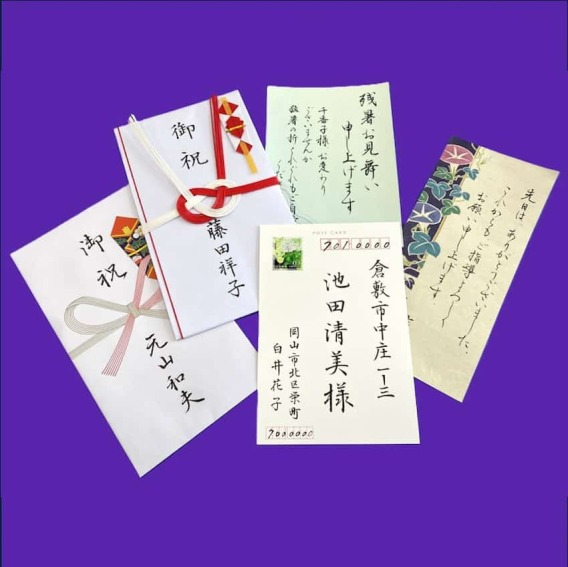 御祝
藤田祥子
御祝
元山和夫
残暑お見舞い
申し上げます
千香子様 お変わり
ございませんか
POST CARD
7010000
倉敷市中庄一ー三
池田清美様
岡山市北区栄町
白井花子
7000000
先日は、ありがとうございました。
これからもご指導よろしく
お願い申し上げます